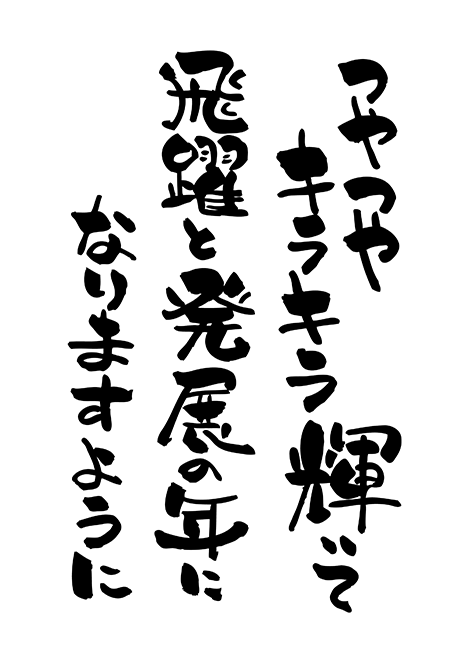 つやつや
キラキラ輝いて
飛躍と発展の年に
なりますように